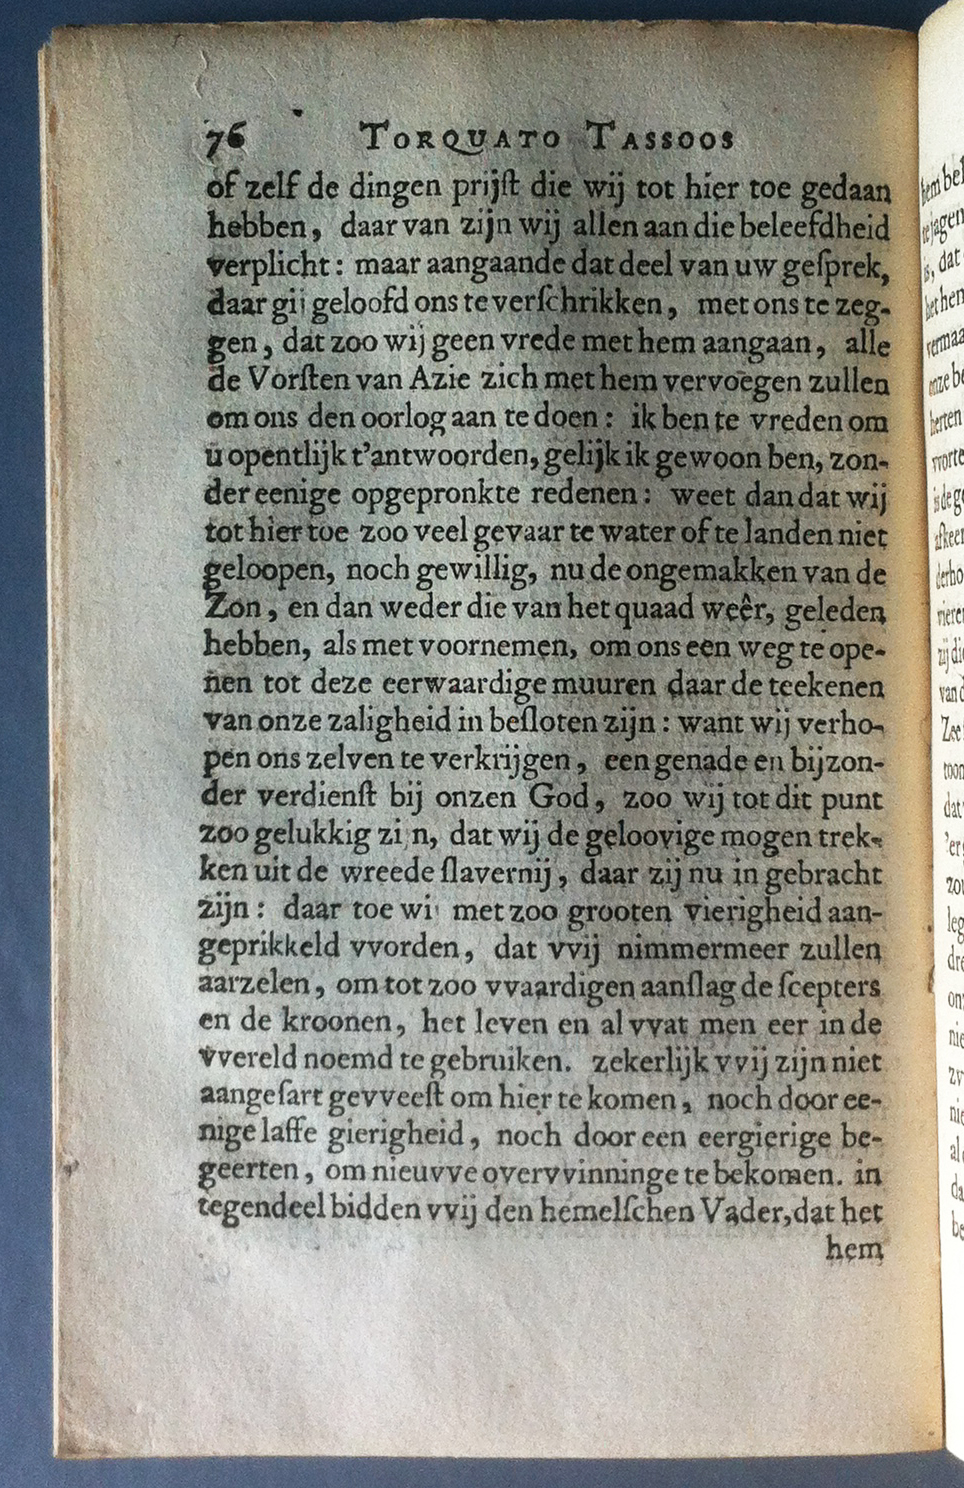 76 TORQUATO TASSOOS
of zelf de dingen prijſt die wij tot hier toe gedaan
hebben, daar van zijn wij allen aan die beleefdheid
verplicht: maar aangaande dat deel van uw geſprek,
daar gij geloofd ons te verſchrikken, met ons te zeg-
gen, dat zoo wij geen vrede met hem aangaan, alle
de Vorſten van Azie zich met hem vervoegen zullen
om ons den oorlog aan te doen: ik ben te vreden om
u opentlijk t'antwoorden, gelijk ik gewoon ben, zon-
der eenige opgepronkte redenen: weet dan dat wij
tot hier toe zoo veel gevaar te water of te landen niet
geloopen, noch gewillig, nu de ongemakken van de
Zon, en dan weder die van het quaad weêr, geleden
hebben, als met voornemen, om ons een weg te ope-
nen tot deze eerwaardige muuren daar de teekenen
van onze zaligheid in beſloten zijn: want wij verho-
pen ons zelven te verkrijgen, een genade en bijzon-
der verdienſt bij onzen God, zoo wij tot dit punt
zoo gelukkig zi n, dat wij de geloovige mogen trek-
ken uit de wreede ſlavernij, daar zij nu in gebracht
zijn: daar toe wi met zoo grooten vierigheid aan-
geprikkeld vvorden, dat vvij nimmermeer zullen
aarzelen, om tot zoo vvaardigen aanſlag de ſcepters
en de kroonen, het leven en al vvat men eer in de
vvereld noemd te gebruiken. zekerlijk vvij zijn niet
aangeſart gevveeſt om hier te komen, noch door ee-
nige laffe gierigheid, noch door een eergierige be-
geerten, om nieuvve overvvinninge te bekomen. in
tegendeel bidden vvij den hemelſchen Vader, dat het
hem